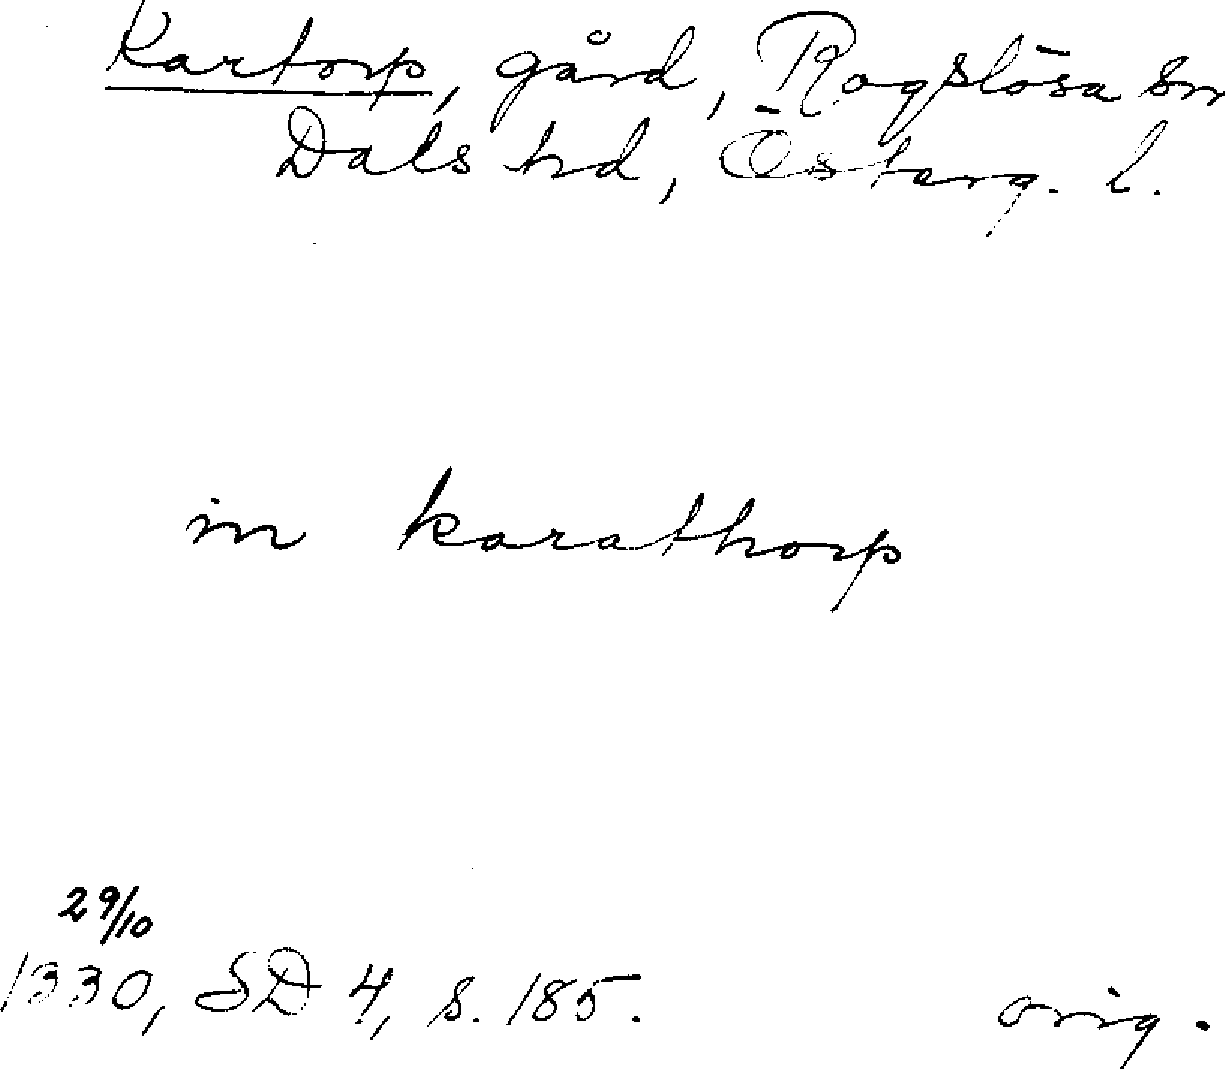 Kartorp, gård, Rogslösa sn
Dals hd, Österg. l.
in karathorp
29/10
1330, SD 4, s. 185. orig.